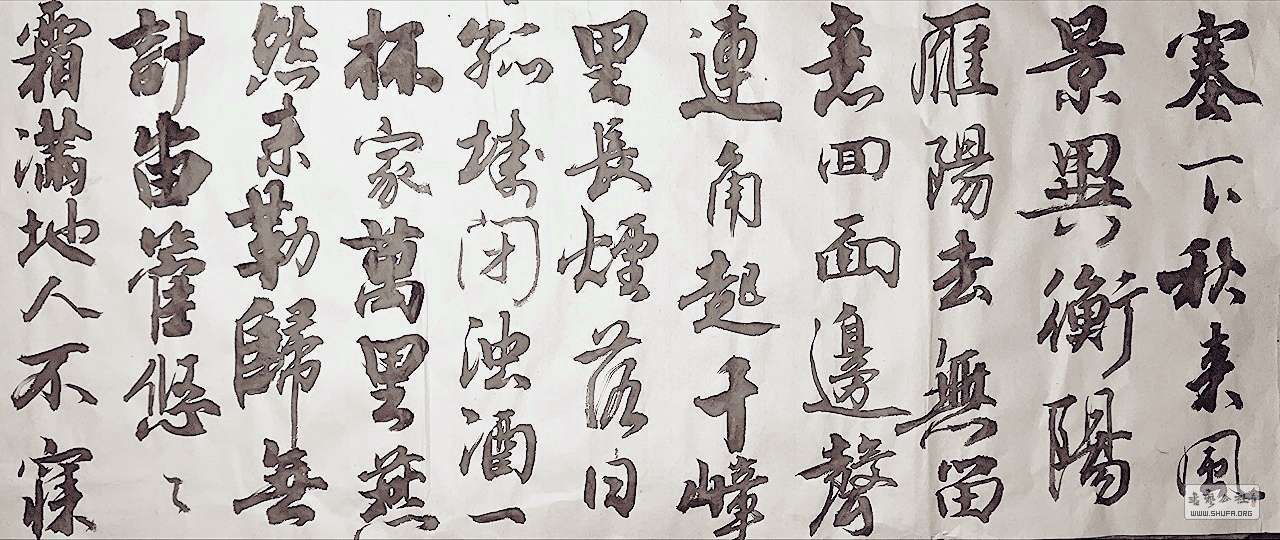 塞下秋来風
景異衡陽
雁陽去無留
意回面邊聲
連角起千嶂
里長煙落日
孤城闭浊酒一
杯家萬里燕
然未勒歸無
計羌管悠々
霜滿地人不寐
WWW.SHUFA.ORG